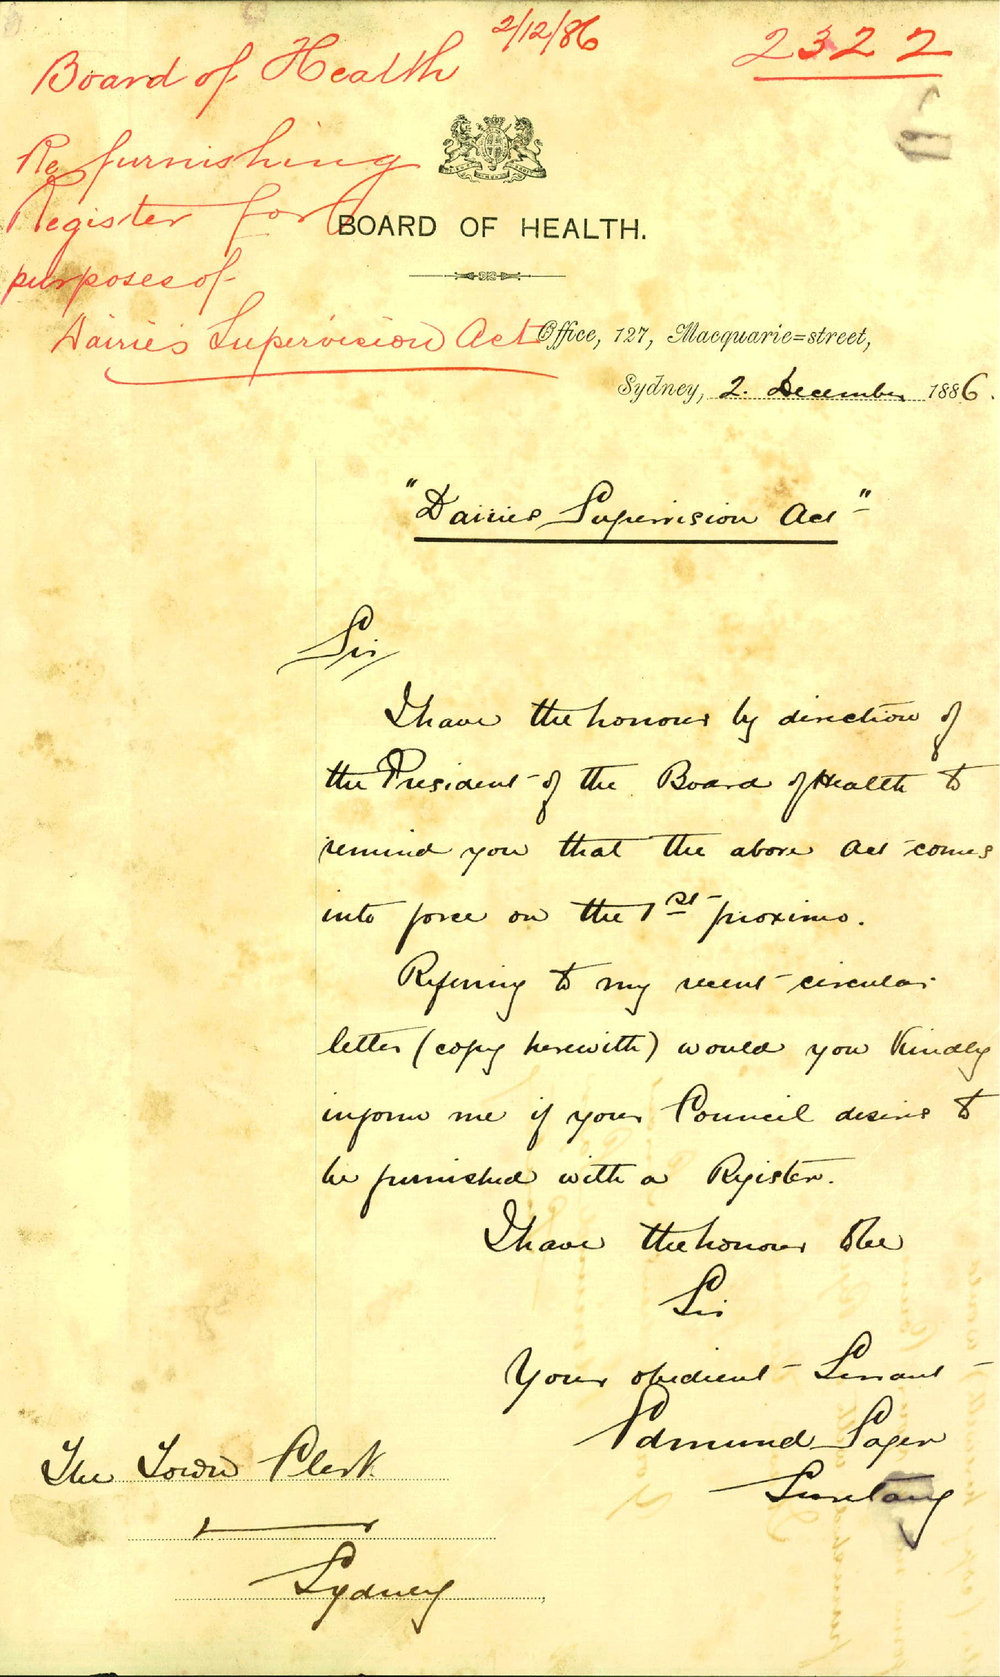 2/12/86
2322
Board of Health
Re furnishing
Register for
purposes of
Dairies Supervision Act
BOARD OF HEALTH.
Office, 127, Macquarie=street,
Sydney, 2. December 1886.
"Dairies Supervision Act"
Sir
I have the honour by direction of
the President of the Board of Health to
remind you that the above Act comes
into force on the 1st proximo.
Referring to my recent circular
letter (copy herewith) would you kindly
inform me if your Council desires to
be furnished with a Register.
I have the honour to be
Sir
Your obedient Servant
Edmund Sager
Secretary
The Town Clerk
Sydney